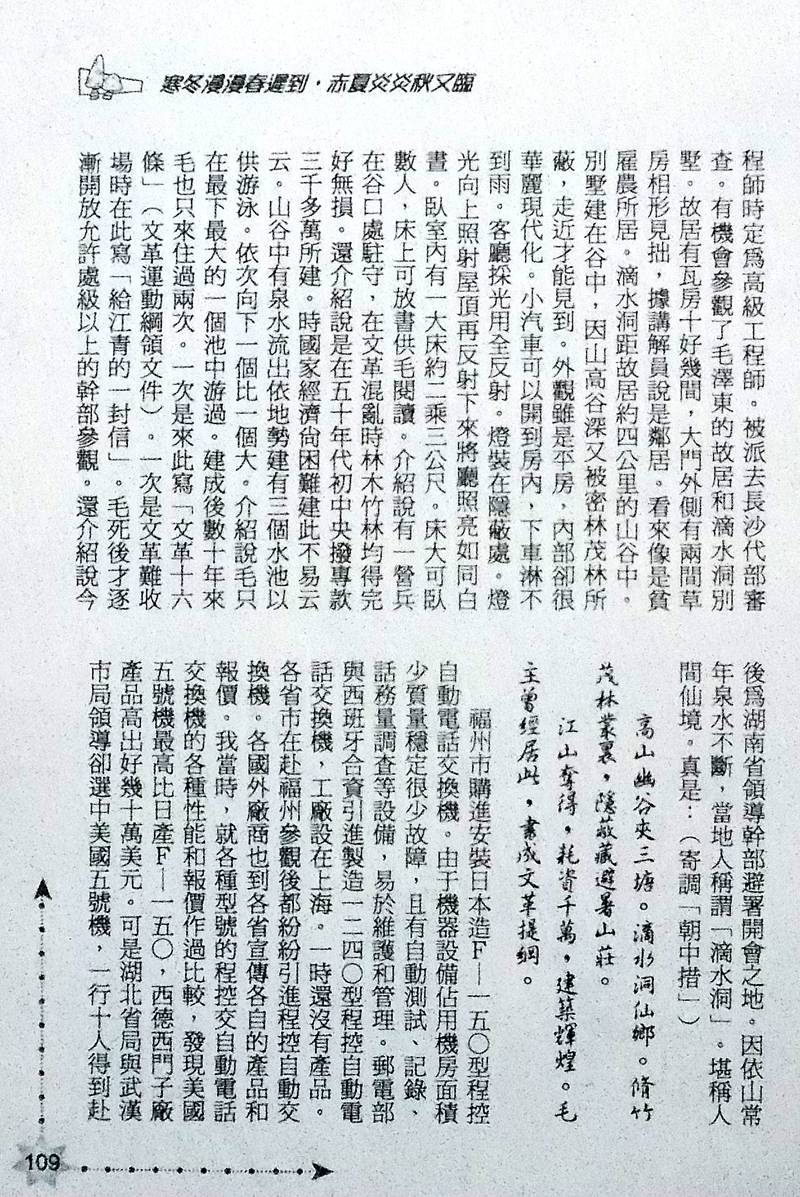 寒冬漫漫春遲到·赤夏炎炎秋又臨
程師時定爲高級工程師。被派去長沙代部審
查。有機會參觀了毛澤東的故居和滴水洞別
墅。故居有瓦房十好幾間，大門外側有兩間草
房相形見拙，據講解員說是鄰居。看來像是貧
雇農所居。滴水洞距故居約四公里的山谷中。
別墅建在谷中，因山高谷深又被密林茂林所
蔽，走近才能見到。外觀雖是平房，內部卻很
華麗現代化。小汽車可以開到房內，下車淋不
到雨。客廳採光用全反射。燈裝在隱蔽處。燈
光向上照射屋頂再反射下來將廳照亮如同白
晝。臥室內有一大床約二乘三公尺。床大可臥
數人，床上可放書供毛閱讀。介紹說有一營兵
在谷口處駐守，在文革混亂時林木竹林均得完
好無損。還介紹說是在五十年代初中央撥專款
三千多萬所建。時國家經濟尙困難建此不易云
云。山谷中有泉水流出依地勢建有三個水池以
供游泳。依次向下一個比一個大。介紹說毛只
在最下最大的一個池中游過。建成後數十年來
毛也只來住過兩次。一次是來此寫「文革十六
條」（文革運動綱領文件）。一次是文革難收
場時在此寫「給江青的一封信」。毛死後才逐
漸開放允許處級以上的幹部參觀。還介紹說今
後爲湖南省領導幹部避署開會之地。因依山常
年泉水不斷，當地人稱謂「滴水洞」。堪稱人
間仙境。真是：（寄調「朝中措」）
高山幽谷夾三塘。滴水洞仙鄉。脩竹
茂林叢裏，隱蔽藏避暑山莊。
江山奪得，耗資千萬，建築輝煌。毛
主曾經居此，書成文革提綱。
福州市購進安裝日本造F—一五〇型程控
自動電話交換機。由于機器設備佔用機房面積
少質量穩定很少故障，且有自動測試、記錄、
話務量調查等設備，易於維護和管理。郵電部
與西班牙合資引進製造一二四〇型程控自動電
話交換機，工廠設在上海。一時還沒有產品。
各省市在赴福州參觀後都紛紛引進程控自動交
換機。各國外廠商也到各省宣傳各自的產品和
報價。我當時，就各種型號的程控交自動電話
交換機的各種性能和報價作過比較，發現美國
五號機最高比日產F—一五〇，西德西門子廠
產品高出好幾十萬美元。可是湖北省局與武漢
市局領導卻選中美國五號機，一行十人得到赴
109